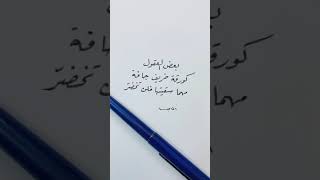 بعض العقول
كورقة خريف جافة
مهما سقيتها فلن تخضر